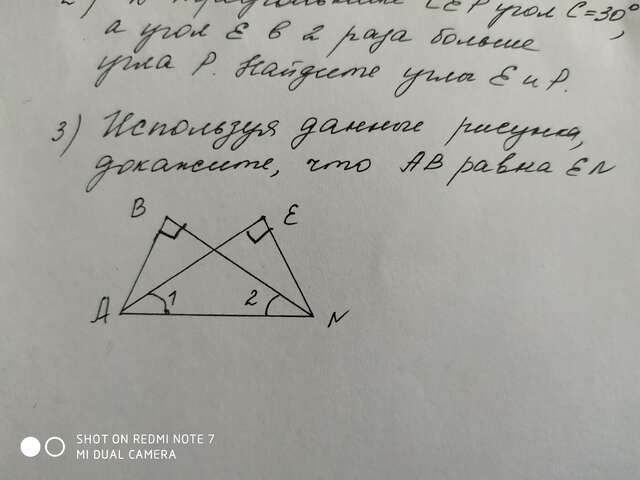 2) В треугольнике CEP угол C=30°,
а угол E в 2 раза больше
угла P. Найдите углы E и P.
3) Используя данные рисунка,
докажите, что AB равна EN
B E
A 1 2 N
SHOT ON REDMI NOTE 7
MI DUAL CAMERA